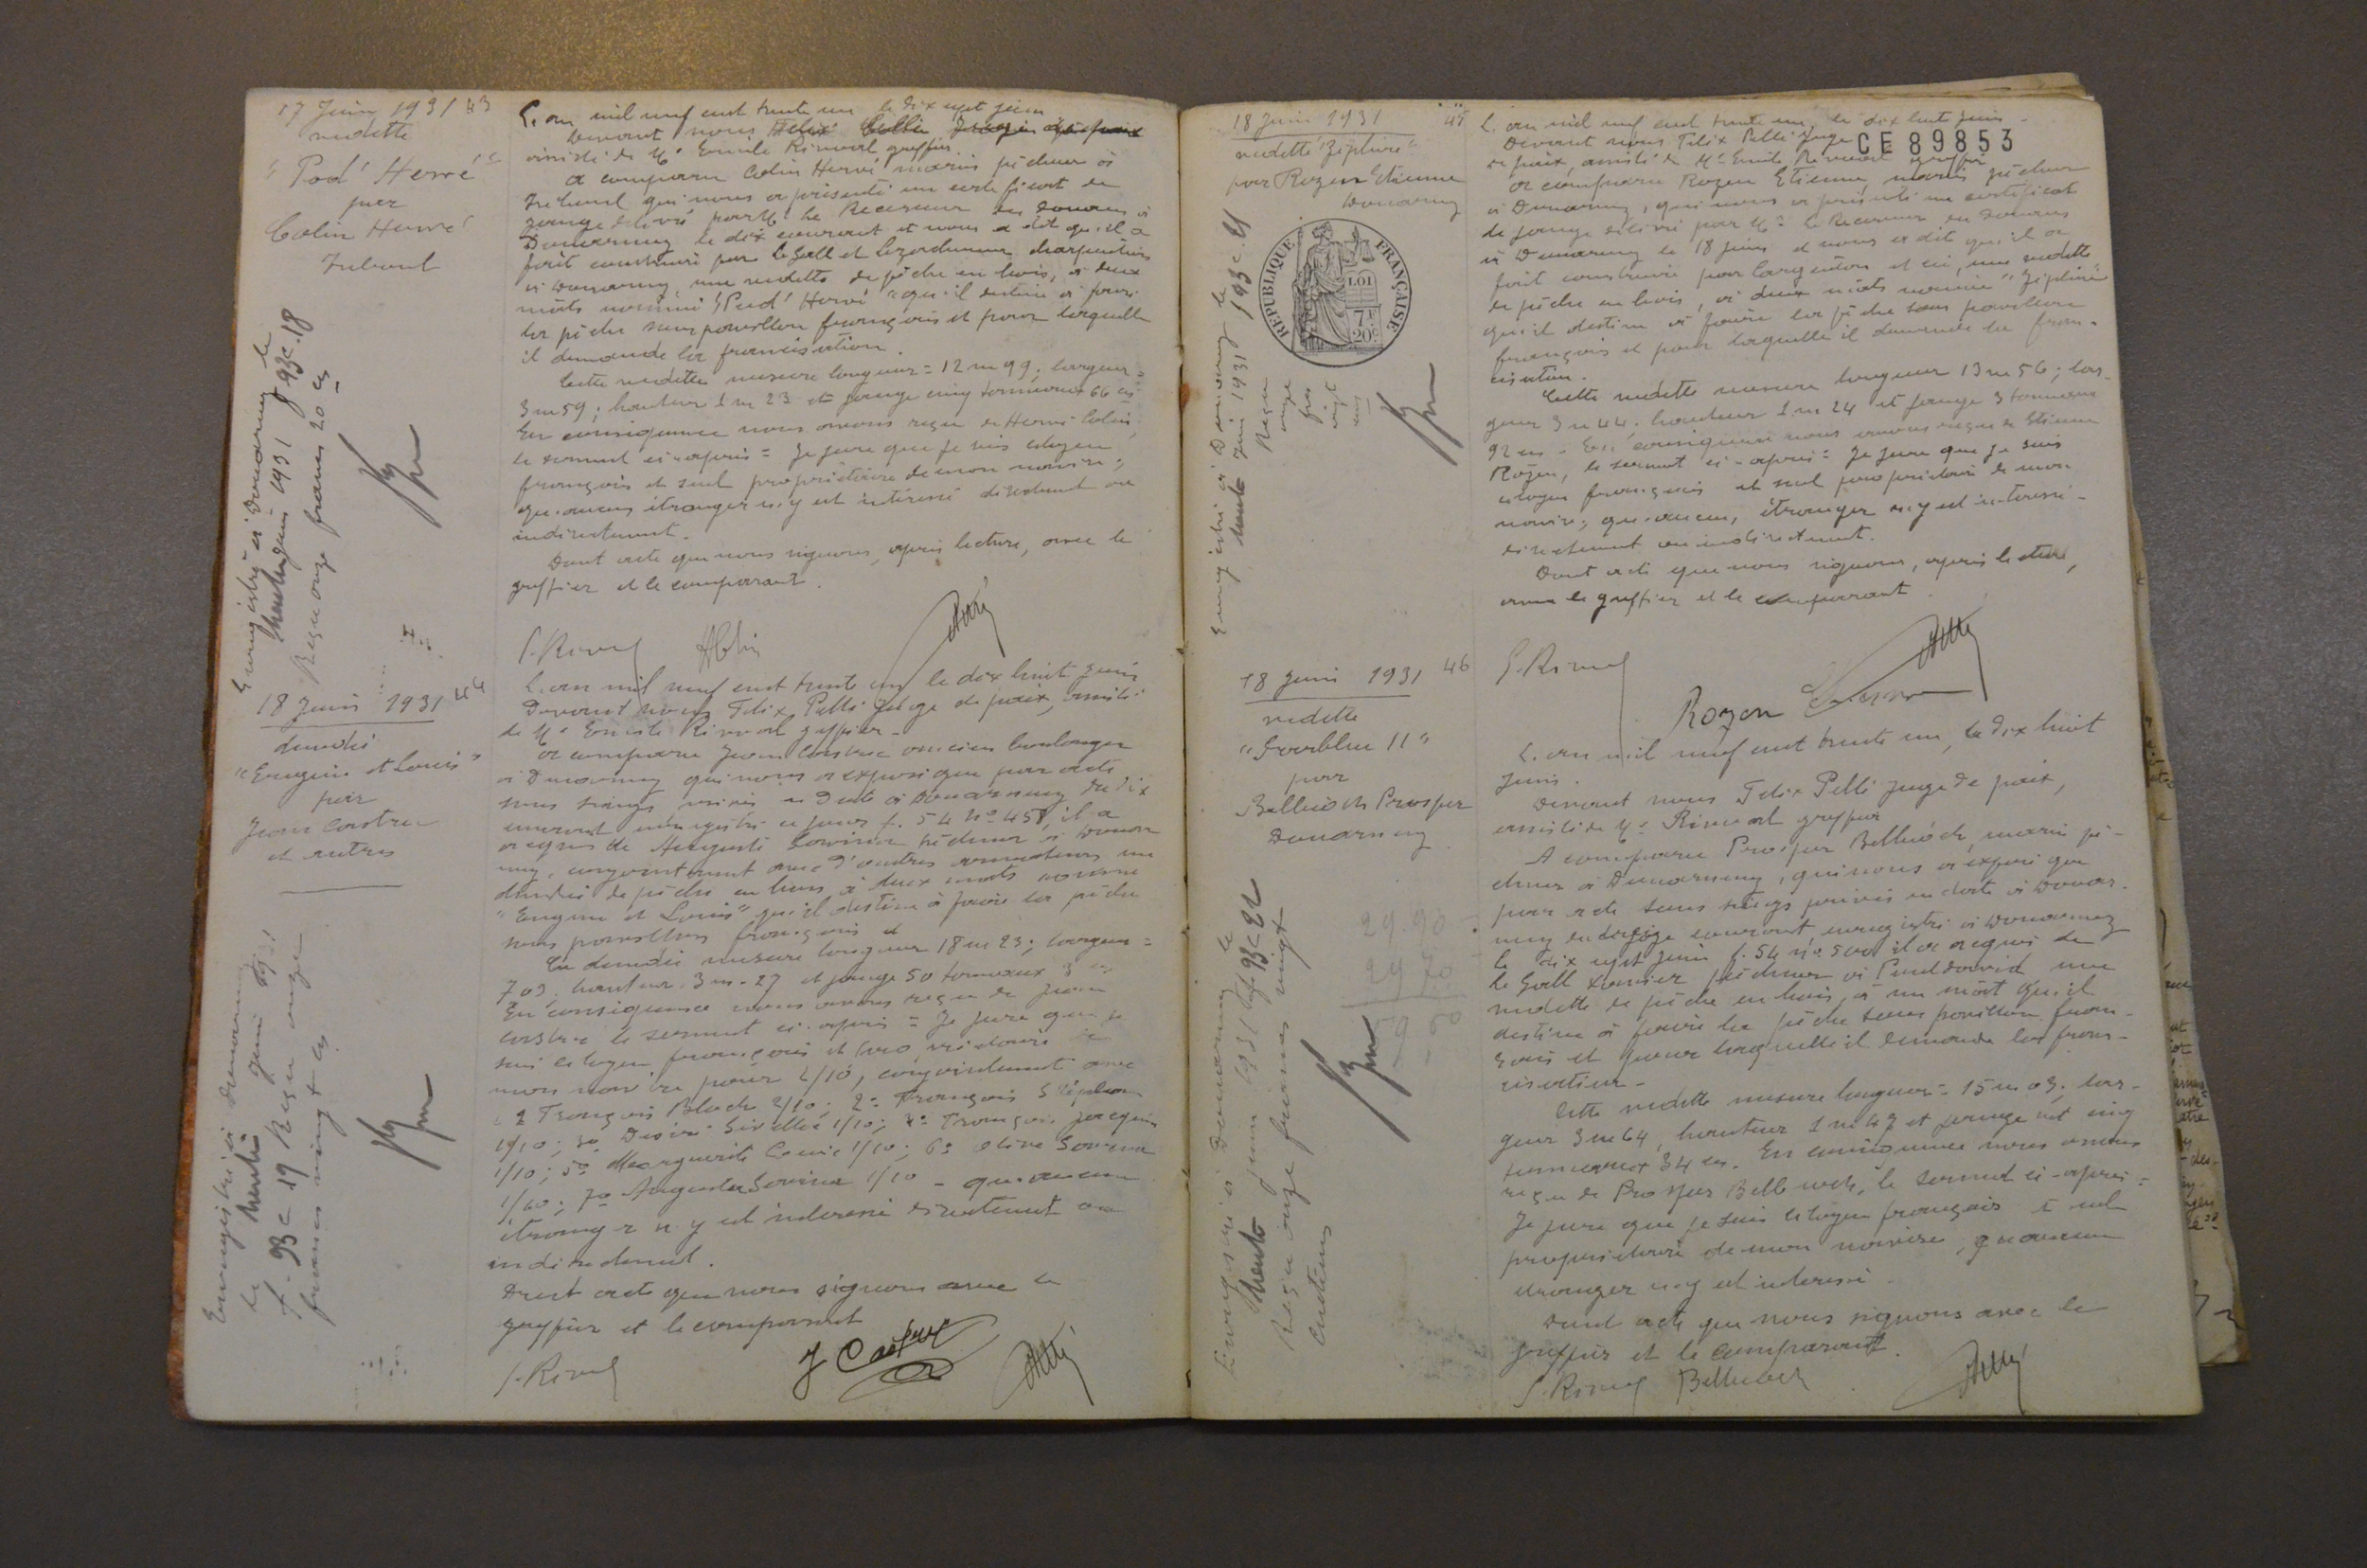 17 Juin 1931 43
vedette
"Pod' Hervé"
par
Colin Hervé
Tréboul
Enregistré à Douarnenez le
trente juin 1931 f 93 c. 18
Reçu onze francs 20 cs
L'an mil neuf cent trente un le dix sept juin
Devant nous Félix Pelli Juge de paix
assisté de Me Emile Rimeval greffier
a comparu Colin Hervé marin pêcheur à
Tréboul qui nous a présenté un certificat de
jauge délivré par Mr le Receveur des douanes à
Douarnenez le dix courant et nous a dit qu'il a
fait construire par Le Gall et charpentiers
à Douarnenez, une vedette de pêche en bois, à deux
mâts nommé "Pod' Hervé" qu'il destine à faire
la pêche sous pavillon français et pour laquelle
il demande la francisation.
Cette vedette mesure longueur = 12 m 99; largeur =
3 m 59; hauteur 1 m 23 et jauge cinq tonneaux 66 cs
En conséquence nous avons reçu de Hervé Colin,
le serment ci-après = Je jure que je suis citoyen
français et seul propriétaire de mon navire;
qu'aucun étranger n'y est intéressé directement ou
indirectement.
Dont acte que nous signons, après lecture, avec le
greffier et le comparant.
18 Juin 1931 44
dundée
"Eugénie et Louis"
par
Jean Castrec
et autres
Enregistré à Douarnenez
le trente juin
f. 93 c 19 Reçu onze
francs vingt cs
L'an mil neuf cent trente un le dix huit juin
Devant nous Félix Pelli Juge de paix, assisté
de Me Emile Rimeval greffier -
a comparu Jean Castrec ancien boulanger
à Douarnenez qui nous a exposé que par acte
sous seings privés en date à Douarnenez du dix
courant enregistré ce jour f. 54 No 457, il a
acquis de Auguste pêcheur à Douarne
nez, conjointement avec d'autres armateurs un
dundée de pêche en bois à deux mâts nommé
"Eugénie et Louis" qu'il destine à faire la pêche
sous pavillon français et
Ce dundée mesure longueur 18 m 23; largeur =
hauteur 3 m. 27 et jauge 50 tonneaux 3 cs
En conséquence nous avons reçu de Jean
Castrec le serment ci-après = Je jure que je
suis citoyen français et propriétaire de
mon navire pour 2/10, conjointement avec
François 2/10; 2o François
1/10; 3o Désiré 1/10; 4o François Jacquin
1/10; 5o Marguerite 1/10; 6o
1/10; 7o 1/10 - qu'aucun
étranger n'y est intéressé directement ou
indirectement.
Dont acte que nous signons avec le
greffier et le comparant
J Castrec
18 Juin 1931 45
vedette "Zéphire"
par Rozen Etienne
Douarnenez
REPUBLIQUE FRANÇAISE
LOI
7F
20c
Enregistré à Douarnenez le
trente juin 1931 f 93 c.
Reçu
onze
frcs
vingt
cms
CE 89853
L'an mil neuf cent trente un, le dix huit juin -
Devant nous Félix Pelli Juge
de paix, assisté de Me Emile Rimeval greffier
a comparu Rozen Etienne, marin pêcheur
à Douarnenez, qui nous a présenté un certificat
de jauge délivré par Mr le Receveur des Douanes
à Douarnenez le 18 juin et nous a dit qu'il a
fait construire par et cie, une vedette
de pêche en bois, à deux mâts nommée "Zéphire"
qu'il destine à faire la pêche sous pavillon
français et pour laquelle il demande la fran-
cisation.
Cette vedette mesure longueur 13 m 56; lar-
geur 3 m 44; hauteur 1 m 24 et jauge 3 tonneaux
92 cs - En conséquence nous avons reçu de Etienne
Rozen, le serment ci-après = Je jure que je suis
citoyen français et seul propriétaire de mon
navire; qu'aucun, étranger n'y est intéressé
directement ou indirectement.
Dont acte que nous signons, après lecture,
avec le greffier et le comparant.
Rozen Etienne
18 Juin 1931 46
vedette
"Goarblen II"
par
Belbéoch Prosper
Douarnenez
29.90
29 70
59 60
Enregistré à Douarnenez le
trente juin 1931 93 c 21
Reçu onze francs vingt
centimes
L'an mil neuf cent trente un, le dix huit
juin.
Devant nous Félix Pelli Juge de paix,
assisté de Me Rimeval greffier
A comparu Prosper Belbéoch, marin pê-
cheur à Douarnenez, qui nous a exposé que
par acte sous seings privés en date à Douar-
nenez du courant enregistré à Douarnenez
le dix sept juin f. 54 No 500 il a acquis de
Le Goll Xavier pêcheur à Pouldavid une
vedette de pêche en bois, à un mât qu'il
destine à faire la pêche sous pavillon fran-
çais et pour laquelle il demande la fran-
cisation -
Cette vedette mesure longueur = 15 m 03; lar-
geur 3 m 64, hauteur 1 m 47 et jauge net cinq
tonneaux 34 cs. En conséquence nous avons
reçu de Prosper Belbéoch, le serment ci-après =
Je jure que je suis citoyen français et seul
propriétaire de mon navire, qu'aucun
étranger n'y est intéressé.
Dont acte que nous signons avec le
greffier et le comparant.
Belbéoch